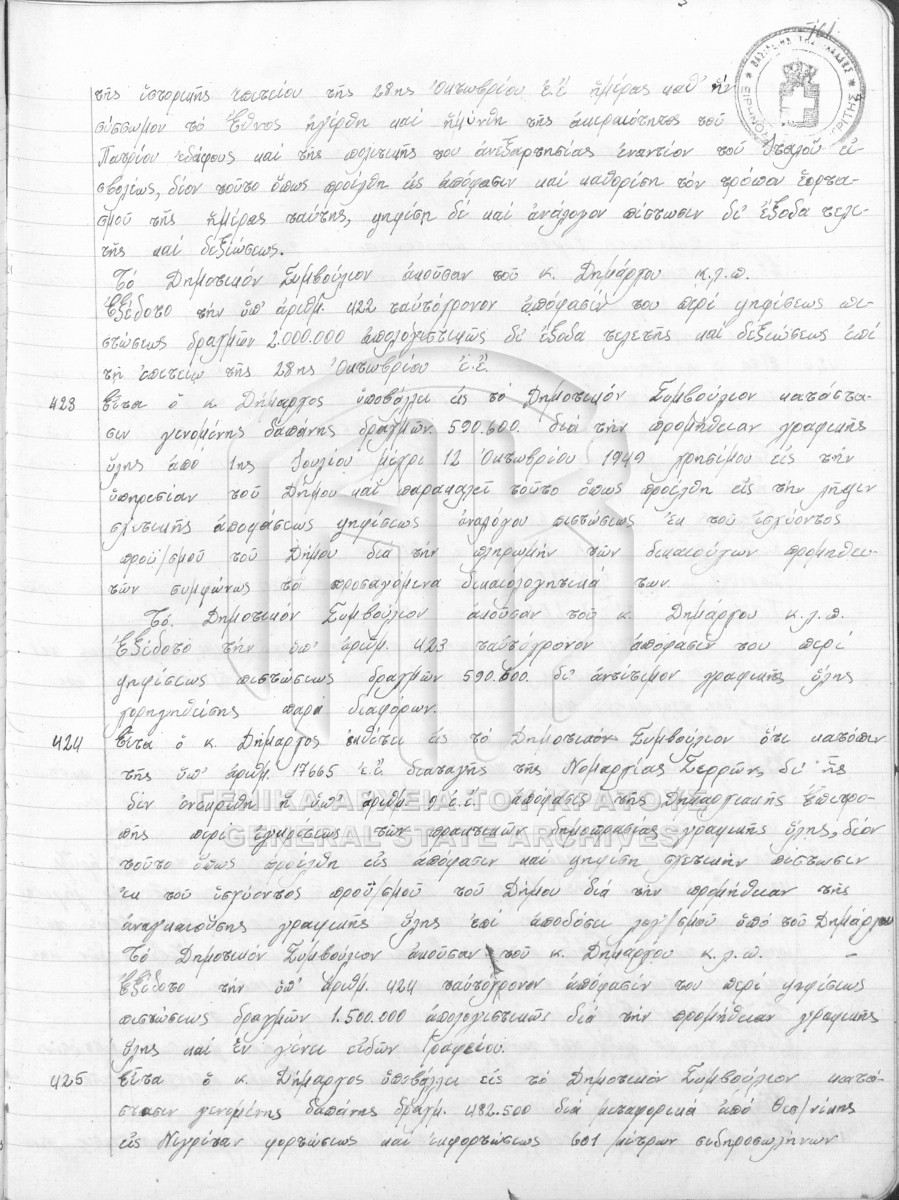 161
τῆς ἱστορικῆς ἐπετείου τῆς 28ης Ὀκτωβρίου ἐ.ἔ. ἡμέρας καθ' ἣν
σύσσωμον τὸ Ἔθνος ἠγέρθη καὶ ἠμύνθη τῆς ἀκεραιότητος τοῦ
Πατρίου ἐδάφους καὶ τῆς πολιτικῆς του ἀνεξαρτησίας ἐναντίον τοῦ Ἰταλοῦ εἰ-
σβολέως, δέον τοῦτο ὅπως προέλθη εἰς ἀπόφασιν καὶ καθορίση τὸν τρόπον ἑορτα-
σμοῦ τῆς ἡμέρας ταύτης, ψηφίση δὲ καὶ ἀνάλογον πίστωσιν δι' ἔξοδα τελε-
τῆς καὶ δεξιώσεως.
Τὸ Δημοτικὸν Συμβούλιον ἀκοῦσαν τοῦ κ. Δημάρχου κ.λ.π.
Ἐξέδοτο τὴν ὑπ' ἀριθμ. 422 ταὐτόχρονον ἀπόφασίν του περὶ ψηφίσεως πι-
στώσεως δραχμῶν 2.000.000 ἀπολογιστικῶς δι' ἔξοδα τελετῆς καὶ δεξιώσεως ἐπὶ
τῇ ἐπετείῳ τῆς 28ης Ὀκτωβρίου ἐ.ἔ.
423 Εἶτα ὁ κ. Δήμαρχος ὑποβάλλει εἰς τὸ Δημοτικὸν Συμβούλιον κατάστα-
σιν γενομένης δαπάνης δραχμῶν 590.600. διὰ τὴν προμήθειαν γραφικῆς
ὕλης ἀπὸ 1ης Ἰουλίου μέχρι 12 Ὀκτωβρίου 1949 χρησίμου εἰς τὴν
ὑπηρεσίαν τοῦ Δήμου καὶ παρακαλεῖ τοῦτο ὅπως προέλθη εἰς τὴν λῆψιν
σχετικῆς ἀποφάσεως ψηφίσεως ἀναλόγου πιστώσεως ἐκ τοῦ ἰσχύοντος
προϋ/σμοῦ τοῦ Δήμου διὰ τὴν πληρωμὴν τῶν δικαιούχων προμηθευ-
τῶν συμφώνως τὰ προσαγόμενα δικαιολογητικά των.
Τὸ Δημοτικὸν Συμβούλιον ἀκοῦσαν τοῦ κ. Δημάρχου κ.λ.π.
Ἐξέδοτο τὴν ὑπ' ἀριθμ. 423 ταὐτόχρονον ἀπόφασίν του περὶ
ψηφίσεως πιστώσεως δραχμῶν 590.600. δι' ἀντίτιμον γραφικῆς ὕλης
χορηγηθείσης παρὰ διαφόρων.
424 Εἶτα ὁ κ. Δήμαρχος ἐκθέτει εἰς τὸ Δημοτικὸν Συμβούλιον ὅτι κατόπιν
τῆς ὑπ' ἀριθμ. 17665 ἐ.ἔ. διαταγῆς τῆς Νομαρχίας Σερρῶν, δι' ἧς
δὲν ἐνεκρίθη ἡ ὑπ' ἀριθμ. 9 ἐ.ἔ. ἀπόφασις τῆς Δημαρχιακῆς Ἐπιτρο-
πῆς περὶ ἐγκρίσεως τῶν πρακτικῶν δημοπρασίας γραφικῆς ὕλης, δέον
τοῦτο ὅπως προέλθη εἰς ἀπόφασιν καὶ ψηφίση σχετικὴν πίστωσιν
ἐκ τοῦ ἰσχύοντος προϋ/σμοῦ τοῦ Δήμου διὰ τὴν προμήθειαν τῆς
ἀναγκαιούσης γραφικῆς ὕλης ἐπὶ ἀποδόσει λογ/σμοῦ ὑπὸ τοῦ Δημάρχου
Τὸ Δημοτικὸν Συμβούλιον ἀκοῦσαν τοῦ κ. Δημάρχου κ.λ.π. –
Ἐξέδοτο τὴν ὑπ' ἀριθμ. 424 ταὐτόχρονον ἀπόφασίν του περὶ ψηφίσεως
πιστώσεως δραχμῶν 1.500.000 ἀπολογιστικῶς διὰ τὴν προμήθειαν γραφικῆς
ὕλης καὶ ἐν γένει εἰδῶν Γραφείου.
425 Εἶτα ὁ κ. Δήμαρχος ὑποβάλλει εἰς τὸ Δημοτικὸν Συμβούλιον κατά-
στασιν γενομένης δαπάνης δραχμ. 482.500 διὰ μεταφορικὰ ἀπὸ Θεσ/νίκης
εἰς Νιγρίταν φορτώσεως καὶ ἐκφορτώσεως 551 μέτρων σιδηροσωλήνων
ΓΕΝΙΚΑ ΑΡΧΕΙΑ ΤΟΥ ΚΡΑΤΟΥΣ
GENERAL STATE ARCHIVES